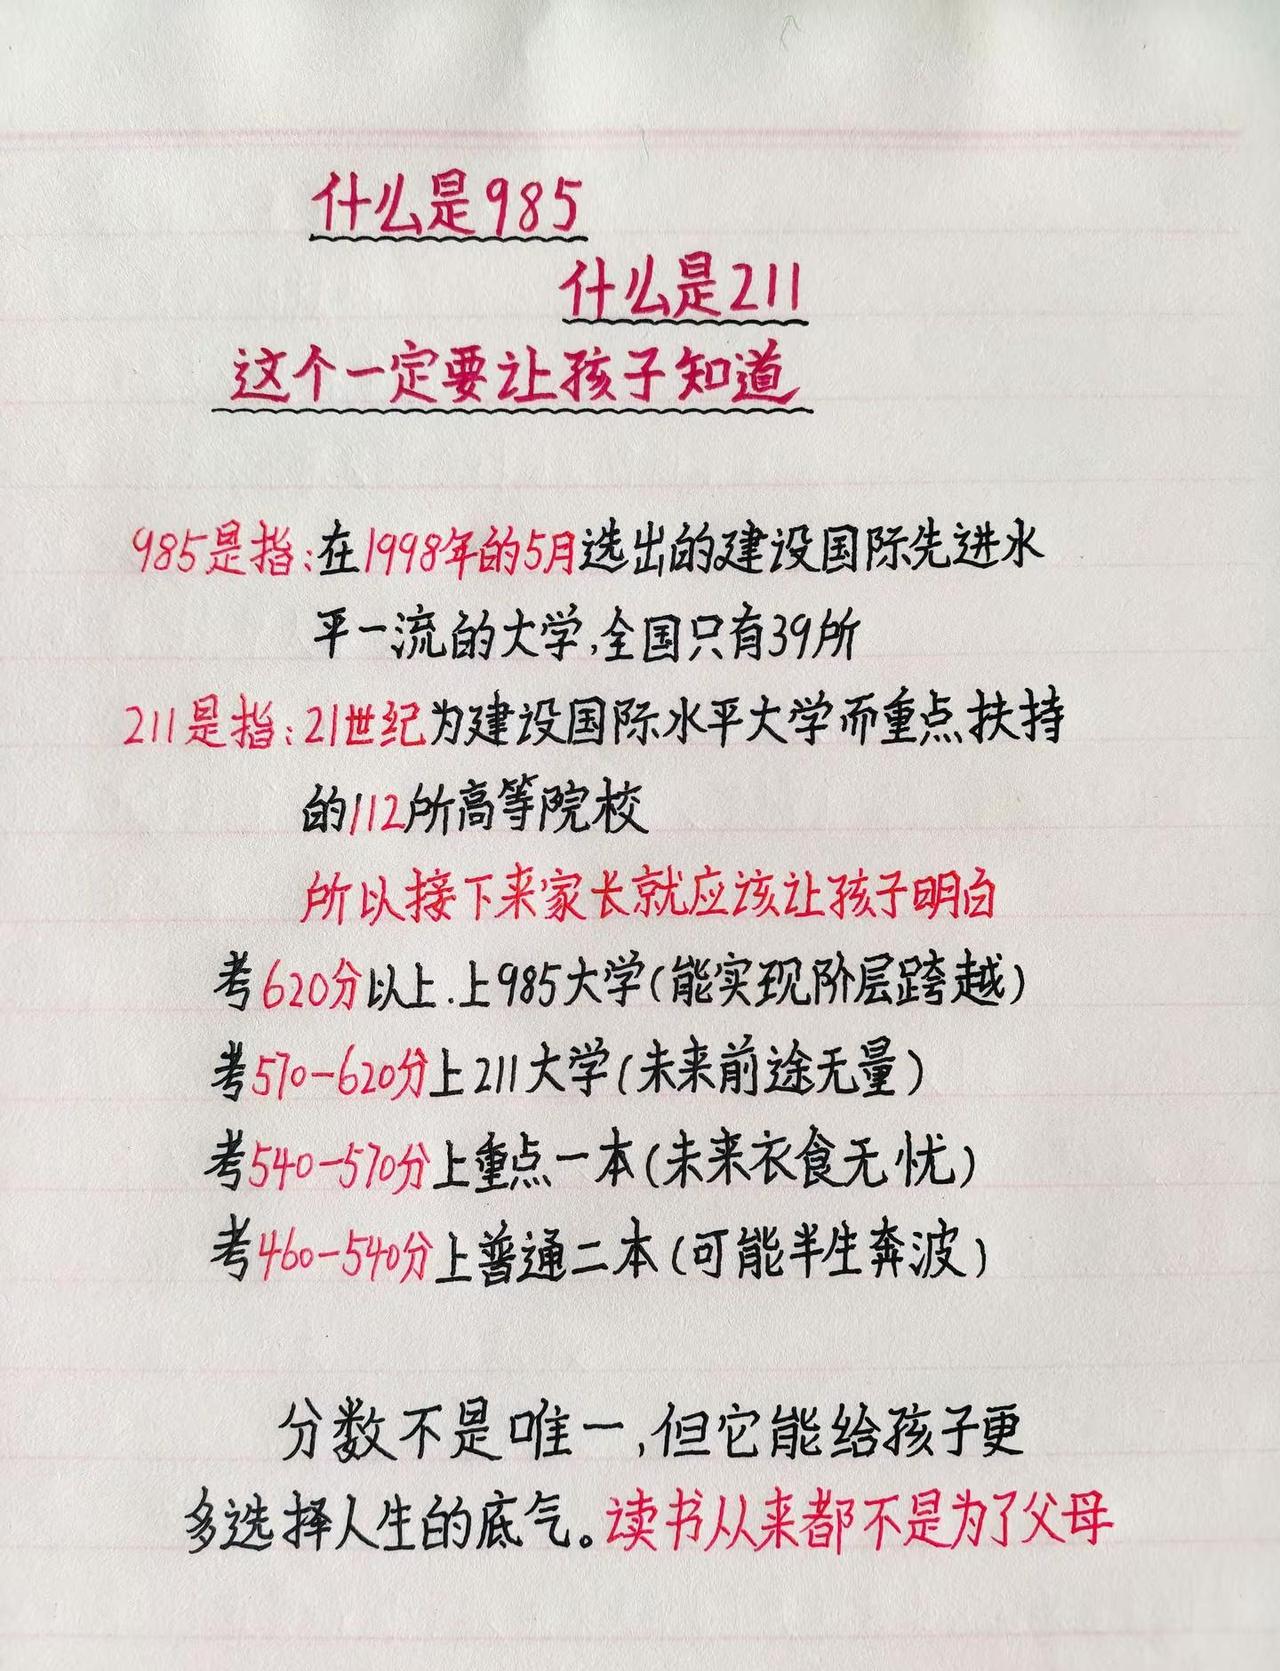 什么是985
什么是211
这个一定要让孩子知道
985是指:在1998年的5月选出的建设国际先进水
平一流的大学,全国只有39所
211是指:21世纪为建设国际水平大学而重点扶持
的112所高等院校
所以接下来家长就应该让孩子明白
考620分以上.上985大学(能实现阶层跨越)
考570-620分上211大学(未来前途无量)
考540-570分上重点一本(未来衣食无忧)
考460-540分上普通二本(可能半生奔波)
分数不是唯一,但它能给孩子更
多选择人生的底气。读书从来都不是为了父母